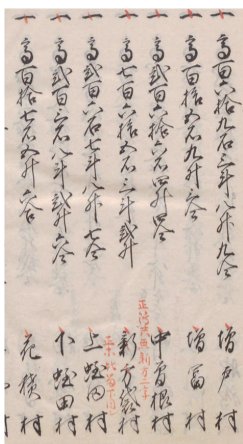 一高百六拾九石八升九合 増戸村
一高百拾五石九升三合 増冨村
一高弐百六拾六石四升四合 中曽根村
一高七百六拾五石三斗弐升 新方袋村
一高弐百六石七斗八升七合 上蛭田村
一高弐百三石八斗弐升六合 下蛭田村
一高百拾七石五升六合 花積村